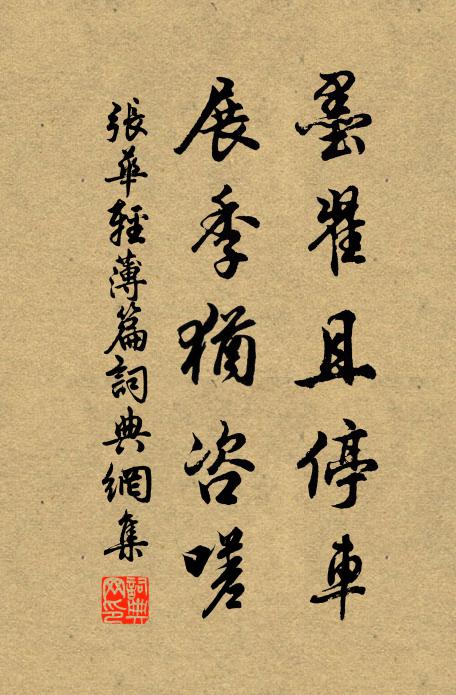 墨翟且停車
展季猶咨嗟
張華輕薄篇詞典網集
詞典网印